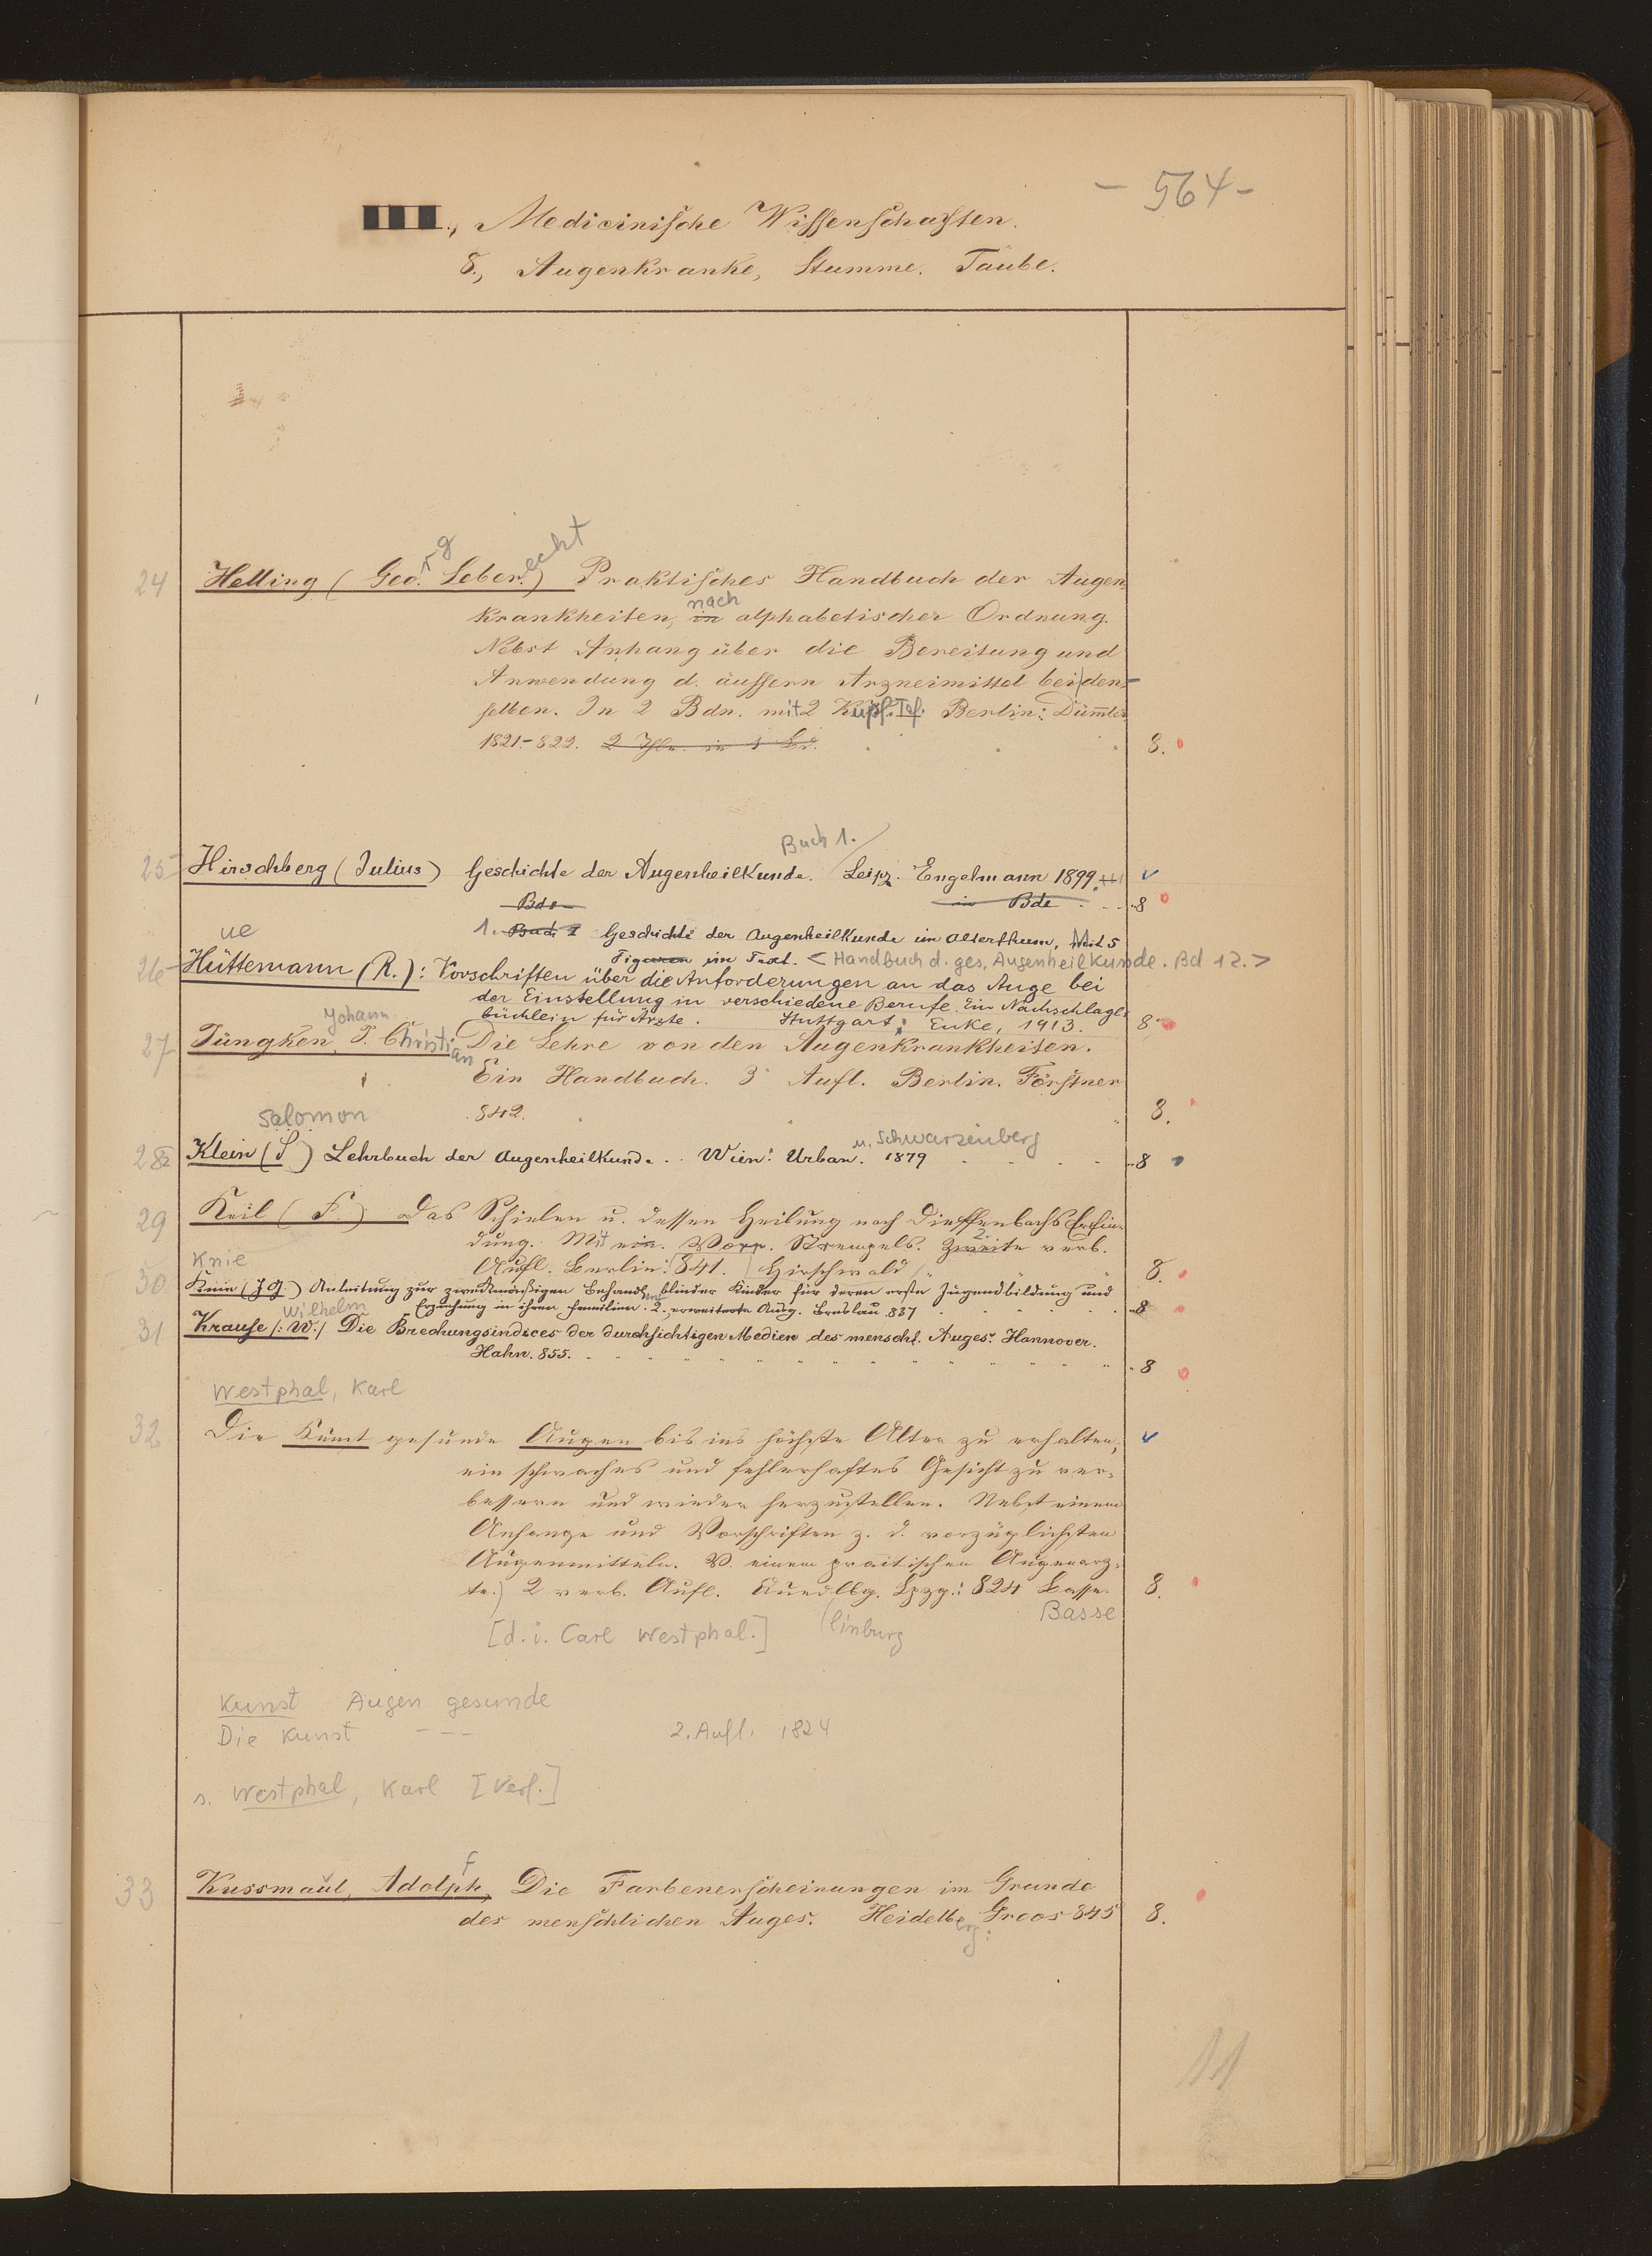 - 564 -
III., Medicinische Wissenschaften.
8., Augenkranke, Stumme. Taube.
24 Helling (Geo.rg Leber.echt) Praktisches Handbuch der Augen-
krankheiten, in nach alphabetischer Ordnung.
Nebst Anhang über die Bereitung und
Anwendung d. äussern Arzneimittel bei den-
selben. In 2 Bdn. mit 2 Kupf. Taf. Berlin: Dümmler
1821.-822. 2 Thle. in 1 Bd. 8.
Buch 1.
25 Hirschberg (Julius) Geschichte der Augenheilkunde. Leipz. Engelmann 1899.
Bde in Bde 8
1. Geschichte der Augenheilkunde im Alterthum. Mit 5
Figuren im Text. < Handbuch d. ges. Augenheilkunde. Bd 12. >
ue
26 Hüttemann (R.): Vorschriften über die Anforderungen an das Auge bei
der Einstellung in verschiedene Berufe. Ein Nachschlage-
büchlein für Ärzte. Stuttgart: Enke, 1913. 8°
Johann
27 Jüngken, J. Christian Die Lehre von den Augenkrankheiten.
Ein Handbuch. 3 Aufl. Berlin. Förstner
842. 8.
Salomon
28 Klein (S) Lehrbuch der Augenheilkunde .. Wien: Urban. u. Schwarzenberg 1879 8
29 Keil (F.) Das Schielen u. dessen Heilung nach Dieffenbachs Erfin-
dung. Mit ein. Vorr. Strempels. Zweite 2. verb.
Aufl. Berlin: 841. Hirschwald 8.
Knie
30 Knie (J G) Anleitung zur zweckmäßigen Behandlung blinder Kinder für deren erste Jugendbildung und
Erziehung in ihren Familien. 2., erweiterte Ausg. Breslau 837 8
Wilhelm
31 Krause /: W:/ Die Brechungsindices der durchsichtigen Medien des menschl. Auges. Hannover.
Hahn. 855. 8
Westphal, Karl
32 Die Kunst gesunde Augen bis ins höchste Alter zu erhalten,
ein schwaches und fehlerhaftes Gesicht zu ver-
bessern und wieder herzustellen. Nebst einem
Anhange und Vorschriften z. d. vorzüglichsten
Augenmitteln. V. einem practischen Augenarz-
te.) 2 verb. Aufl. Quedlbg. Lpzg.: 824 Basse. 8.
[d. i. Carl Westphal.] linburg Basse
Kunst Augen gesunde
Die Kunst - - - 2. Aufl. 1824
s. Westphal, Karl [Verf.]
f
33 Kussmaul, Adolph, Die Farbenerscheinungen im Grunde
des menschlichen Auges. Heidelberg: Groos 845 8.
11